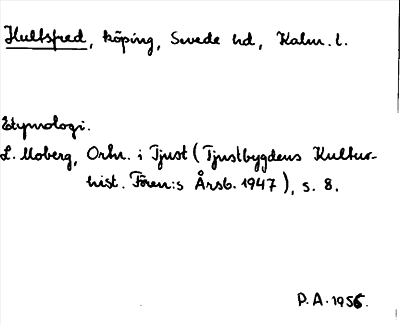 Hultsfred, köping, Svede hd, Kalm. l.
Etymologi.
L. Moberg, Ortn. i Tjust (Tjustbygdens Kultur-
hist. Fören:s Årsb. 1947), s. 8.
P.A. 1956.